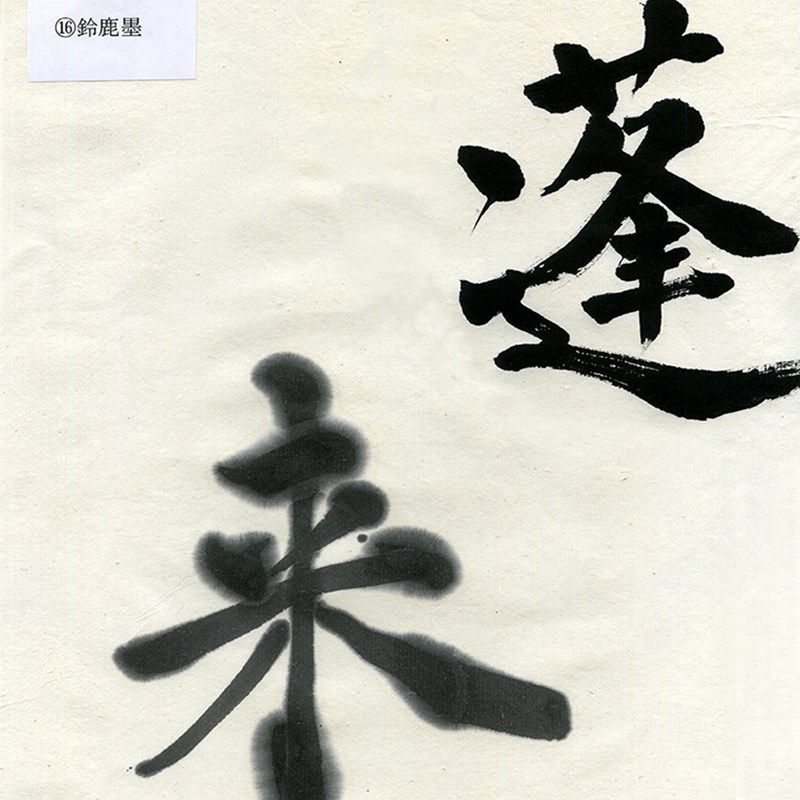 ⑯鈴鹿墨
蓬
来